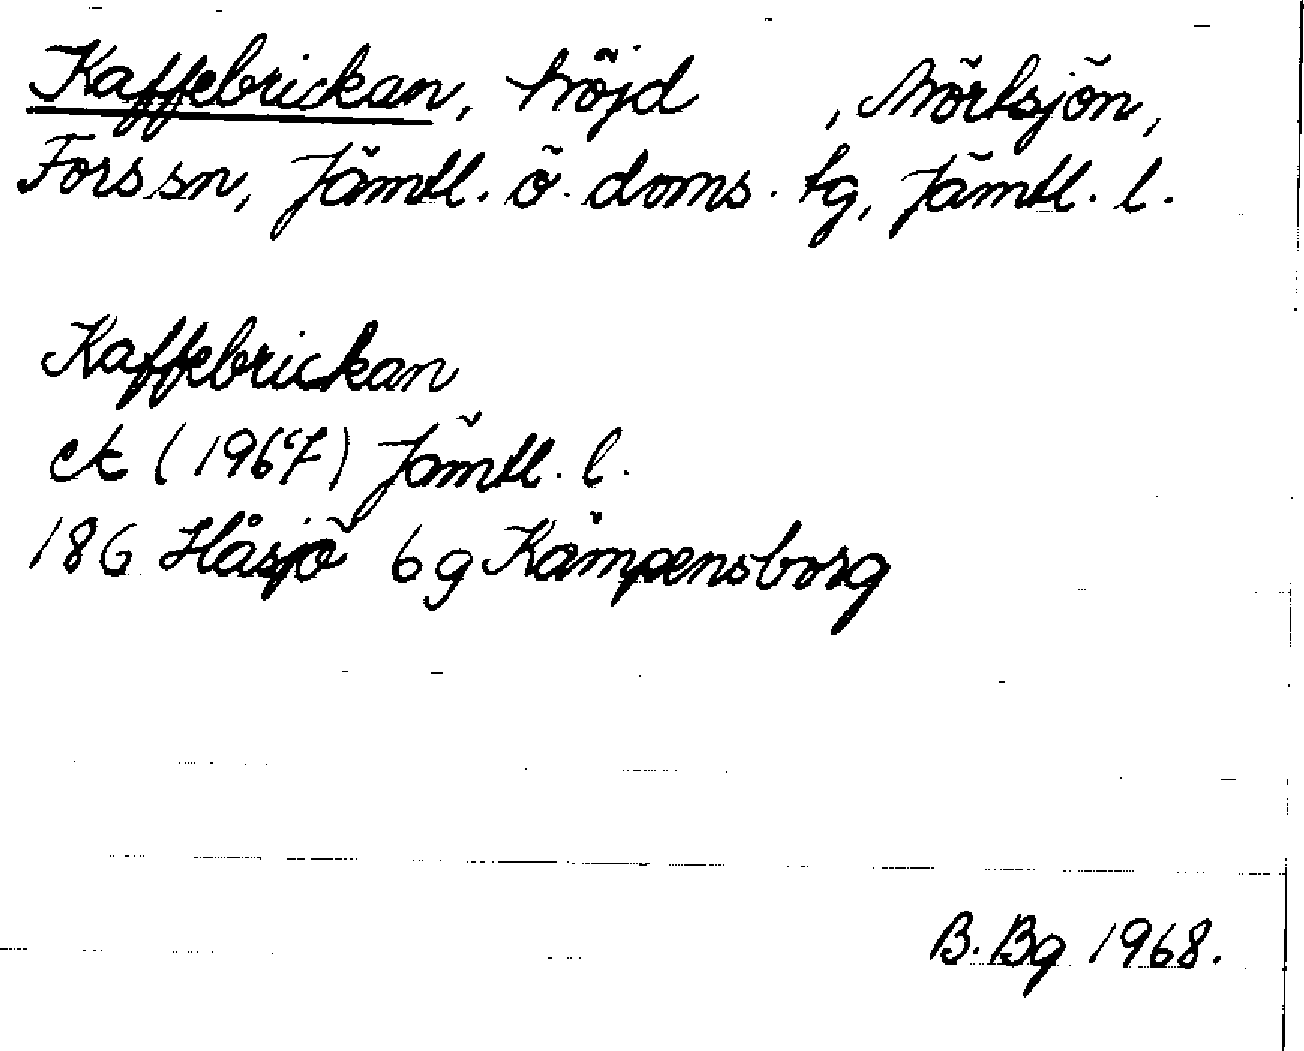 Kaffebrickan, höjd , Mörtsjön,
Fors sn, Jämtl. ö. doms. tg, Jämtl. l.
Kaffebrickan
ek (1967) Jämtl. l.
18G Håsjö 6g Kämpensborg
B. Bg 1968.